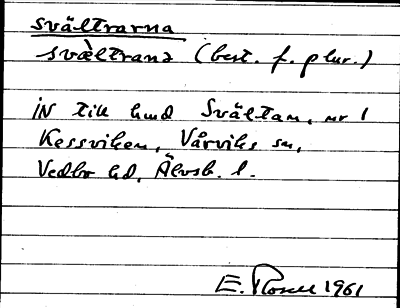 svältrarna
svæ̀ltrana (best. f. plur.)
IN till hmd Svältan, nr 1
Kessviken, Vårviks sn,
Vedbo hd, Älvsb. l.
E. Rosell 1961